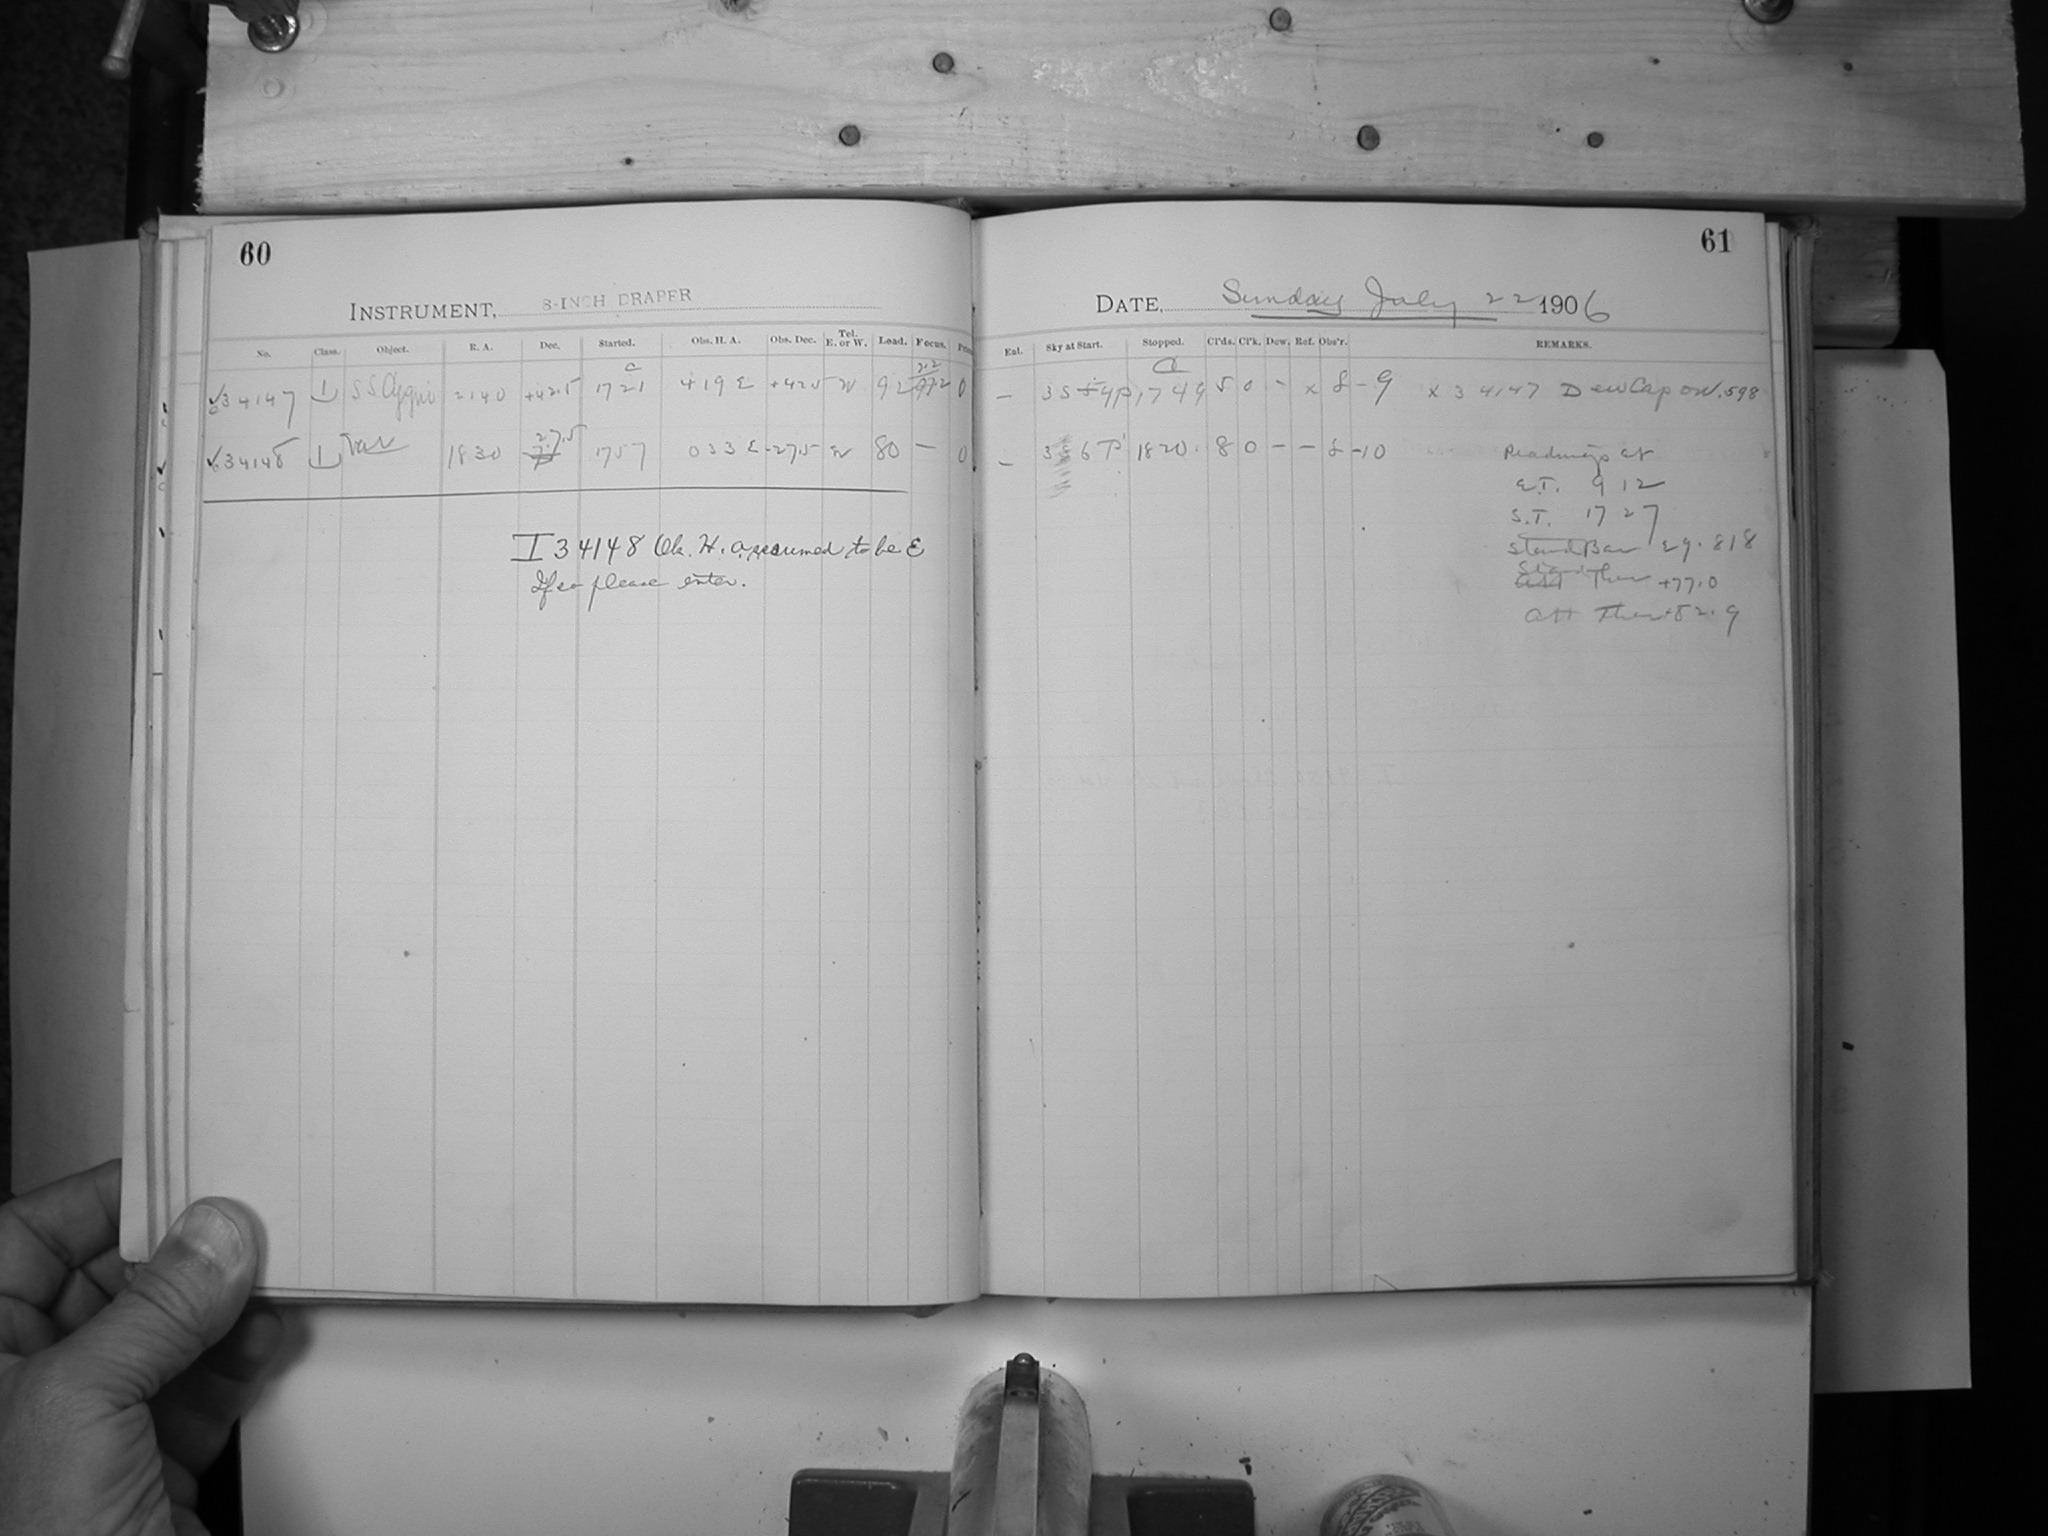 60
INSTRUMENT, 8-INCH DRAPER
No. Class. Object. R. A. Dec. Started. Obs. H. A. Obs. Dec. Tel. E. or W. Load. Focus.
34147 SS Cygni 2140 +42.5 1721 419 E +42.5 W 92 0
34148 Var 1830 27.5 1757 033 E -27.5 W 80 — 0
I 34148 Ob. H. a assumed to be E
If so please enter.
61
DATE, Sunday July 22 1906
Eul. Sky at Start. Stopped. Cl'ds. Cl'k. Dew. Ref. Obs'r. REMARKS.
— 1749 5 0 - x - 9 x 34147 Dew Cap on .598
— 1820. 8 0 - - -10 Readings at
E.T. 9 12
S.T. 17 27
Stand Bar 29.818
Stand Ther +77.0
Att Ther +82.9